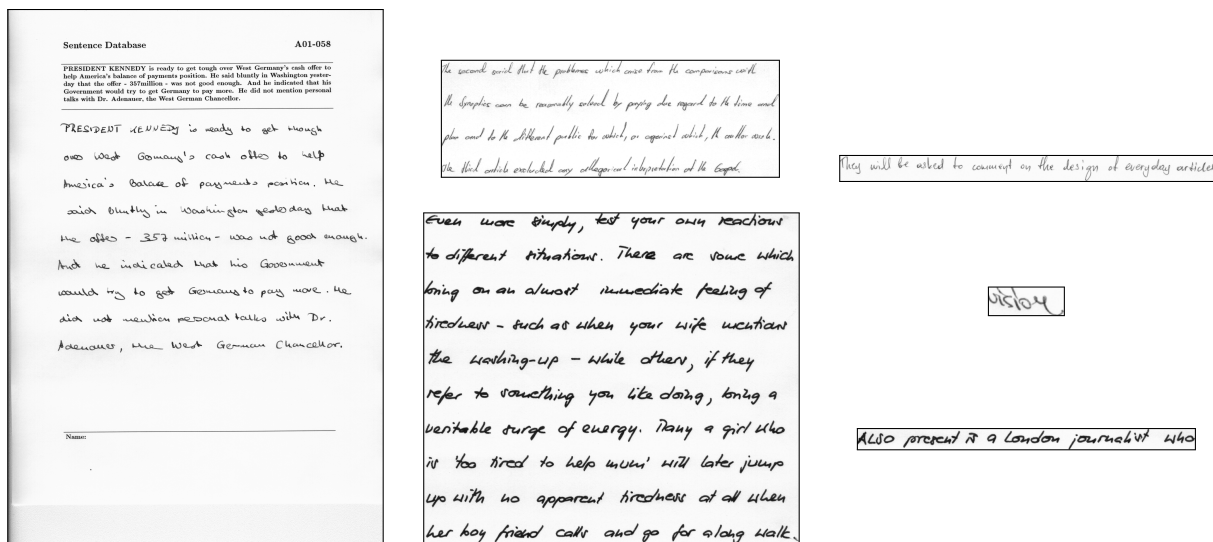 Sentence Database A01-058
PRESIDENT KENNEDY is ready to get tough over West Germany's cash offer to
help America's balance of payments position. He said bluntly in Washington yester-
day that the offer - 357million - was not good enough. And he indicated that his
Government would try to get Germany to pay more. He did not mention personal
talks with Dr. Adenauer, the West German Chancellor.
PRESIDENT KENNEDY is ready to get though
over West Gemany's cash offer to help
America's Balace of payments position. He
said bluntly in Washington yesterday that
the offer - 357 million - was not good enough.
And he indicated that his Government
would try to get Germany to pay more. He
did not mention personal talks with Dr.
Adenauer, the West German Chancellor.
Name:
The second said that the problems which arise from the comparisons with
the Synoptics can be reasonably solved by paying due regard to the time and
plan and to the different public for which, or against which, the author wrote.
The third article excluded any allegorical interpretation of the Gospel.
Even more simply, test your own reactions
to different situations. There are some which
bring on an almost immediate feeling of
tiredness - such as when your wife mentions
the washing-up - while others, if they
refer to something you like doing, bring a
veritable surge of energy. Many a girl who
is 'too tired to help mum' will later jump
up with no apparent tiredness at all when
her boy friend calls and go for a long walk.
They will be asked to comment on the design of everyday articles
ALSO present is a London journalist who